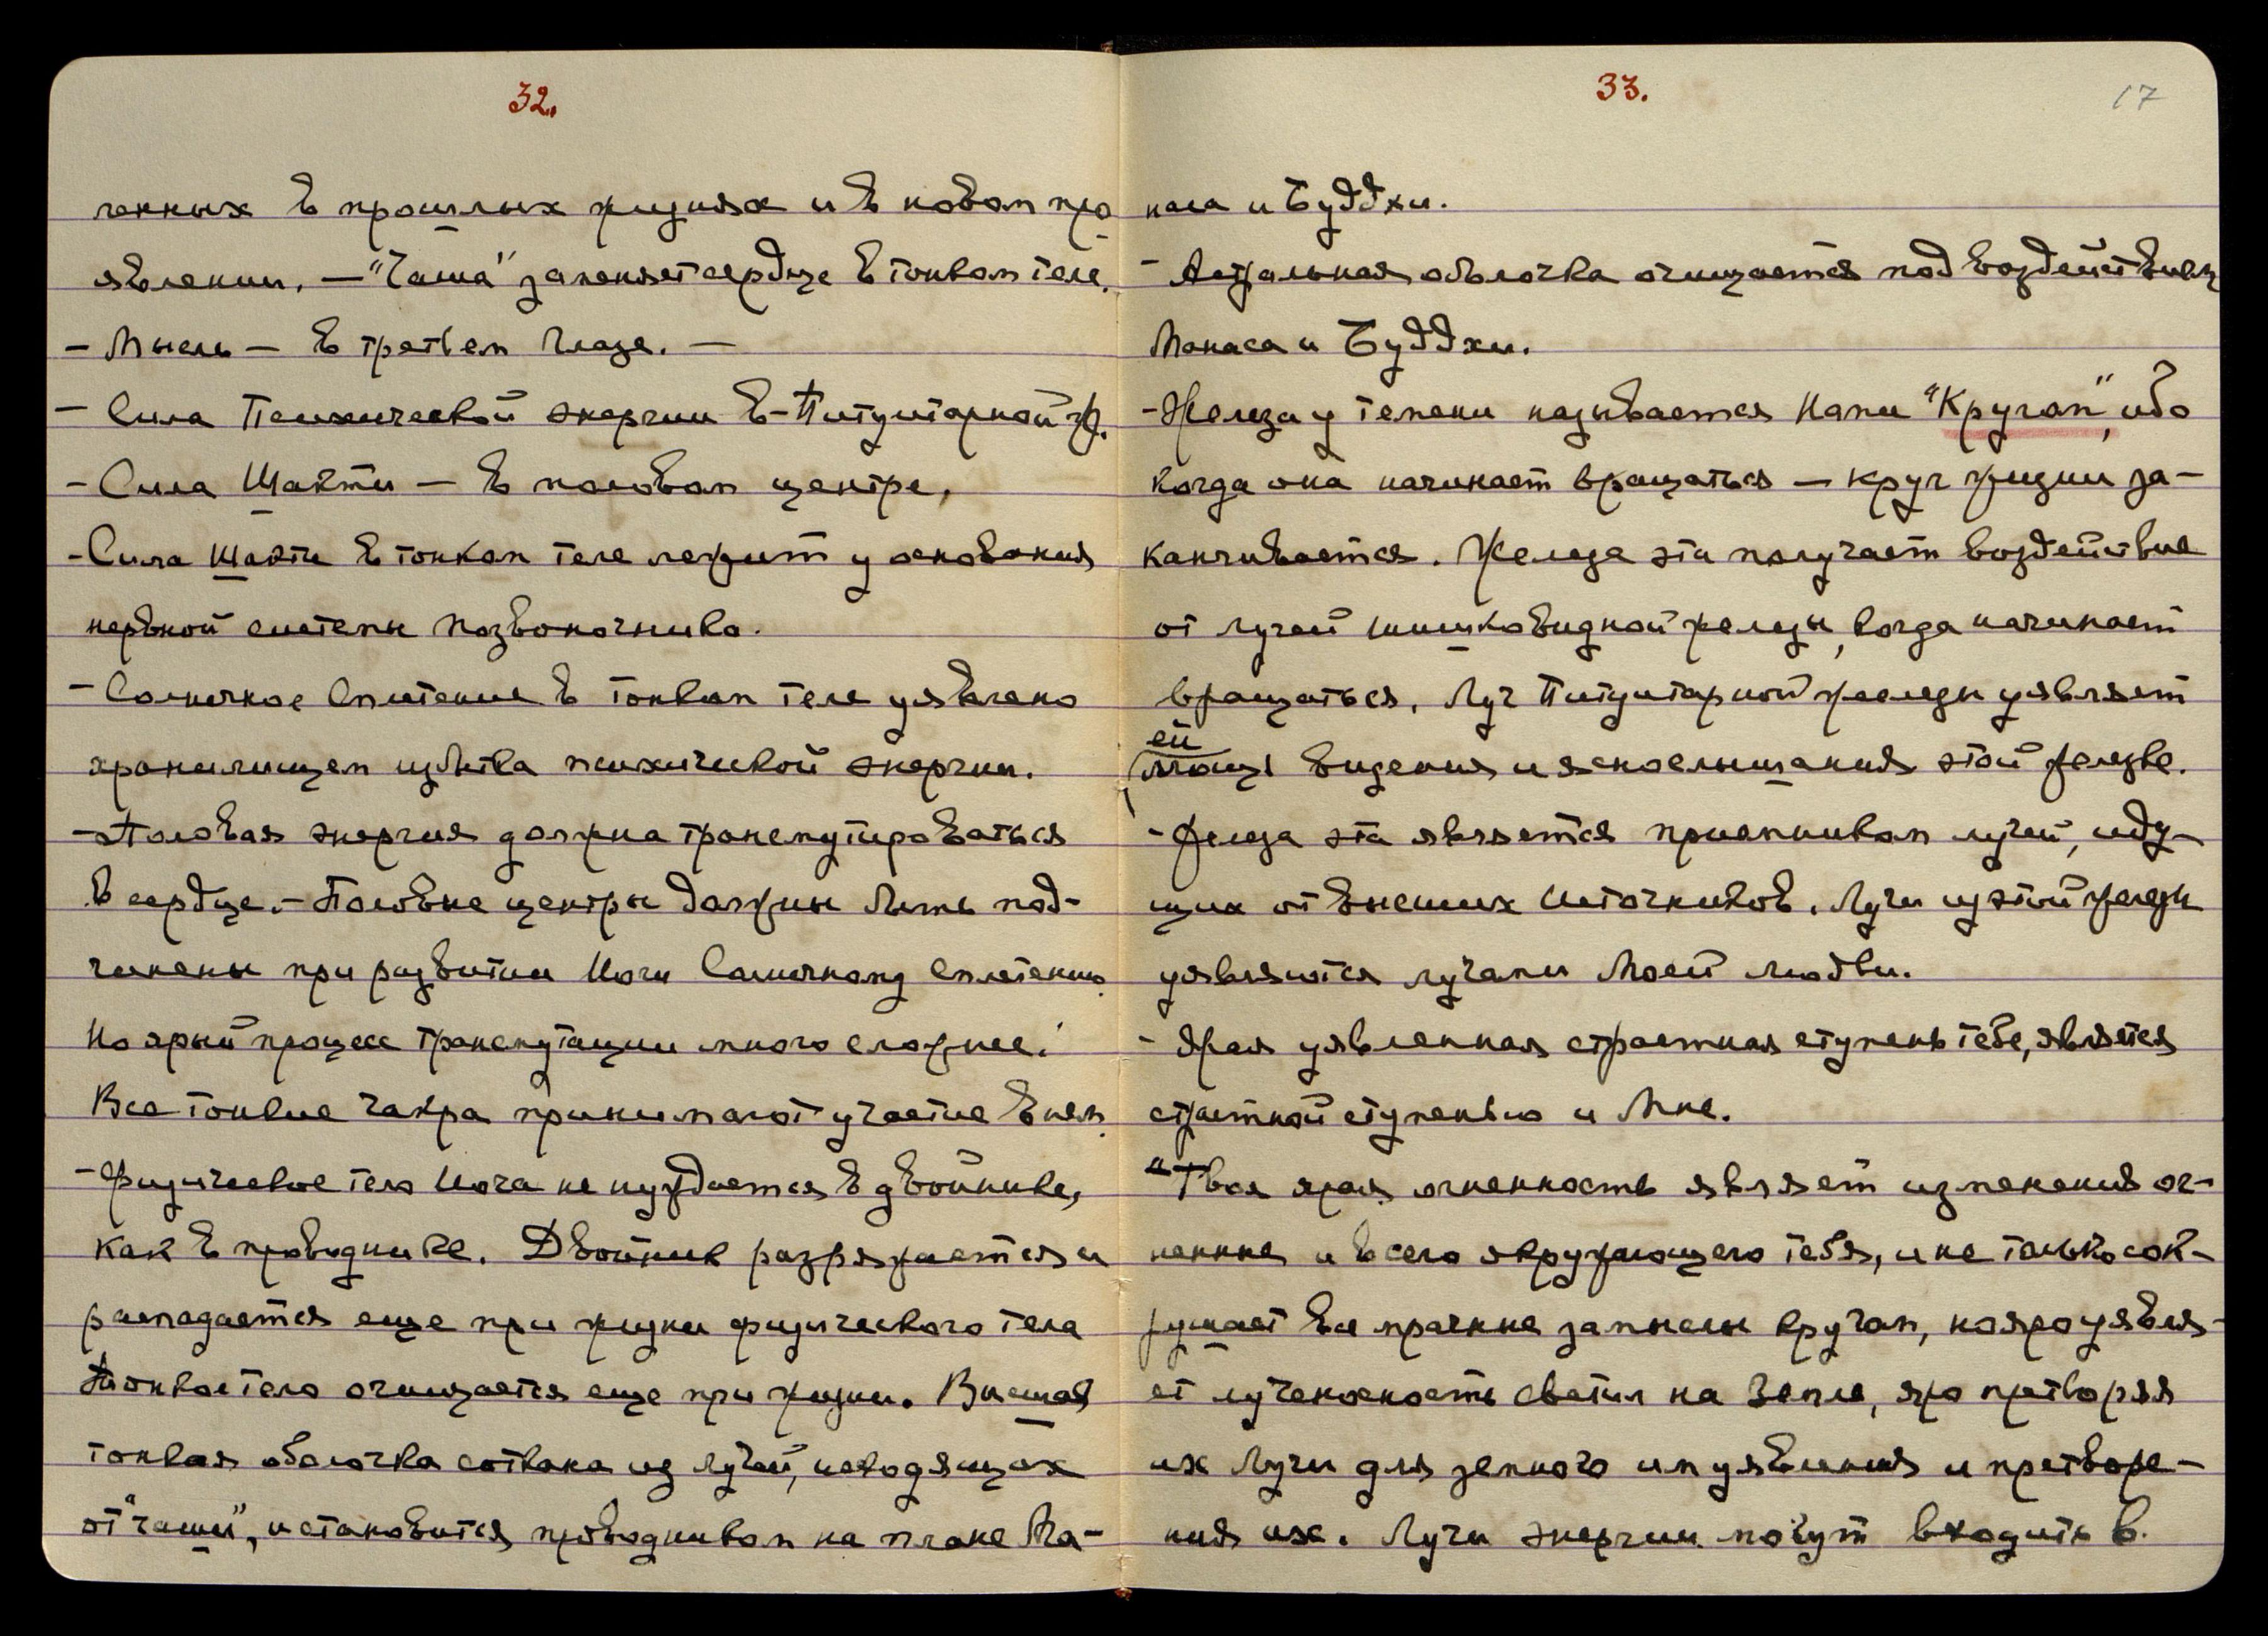 32.
ченных в прошлых жизнях и в новом про
явлении. — "Чаша" заменяет сердце в тонком теле.
- Мысль — в третьем глазе. —
- Сила Психической энергии в - Питуитарной ж.
- Сила Шакти — в половом центре,
- Сила Шакти в тонком теле лежит у основания
нервной системы позвоночника.
- Солнечное Сплетение в тонком теле уявлено
хранилищем избытка психической энергии.
- Половая энергия должна трансмутироваться
в сердце. - Половые центры должны быть под-
чинены при развитии Йоги Солнечному Сплетению.
Но ярый процесс трансмутации много сложнее.
Все тонкие чакры принимают участие в нем.
- Физическое тело Йога не нуждается в двойнике,
как в проводнике. Двойник разряжается и
распадается еще при жизни физического тела
Тонкое тело очищается еще при жизни. Высшая
тонкая оболочка соткана из лучей, исходящих
от "чаши", и становится проводником на плане Ма-
33.
17
наса и Буддхи.
- Астральная оболочка очищается под воздействием
Манаса и Буддхи.
- Железа у темени называется Нами "Кругом", ибо
когда она начинает вращаться — круг жизни за-
канчивается. Железа эта получает воздействие
от лучей шишковидной железы, когда начинает
вращаться. Луч Питуитарной железы уявляет
ей
мощь видения и яснослышания этой железе.
- Железа эта является приемником лучей, иду-
щих от внешних Источников. Лучи из этой железы
уявляются лучами Моей любви.
- Ярая уявленная страстная ступень тебе, является
страстной ступенью и Мне.
"Твоя ярая огненность являет изменения ог-
ненные и всего окружающего тебя, и не только сок-
рушает все мрачные замыслы кругом, но яро уявля-
ет лученосность светил на Земле, яро претворяя
их Лучи для земного им уявления и претворе-
ния их. Лучи энергии могут входить в.